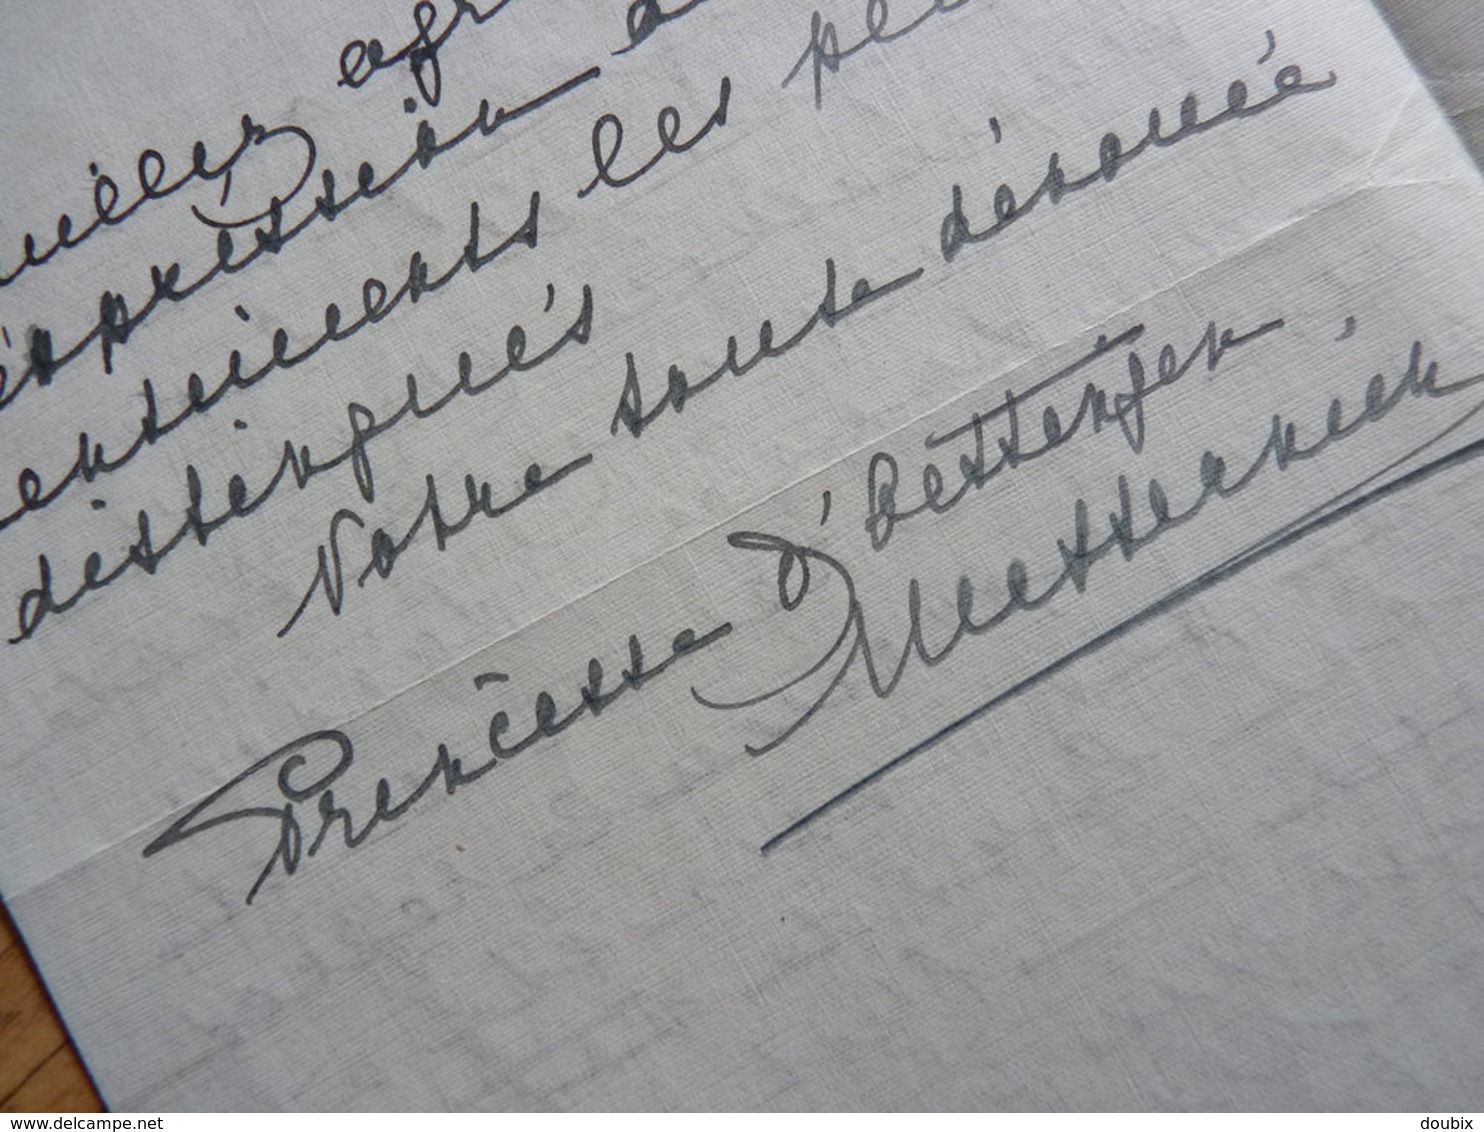 expression
sentiments les
distingués
Votre toute dévouée
Princesse d'Oettingen
Metternich
www.delcampe.net
doubix